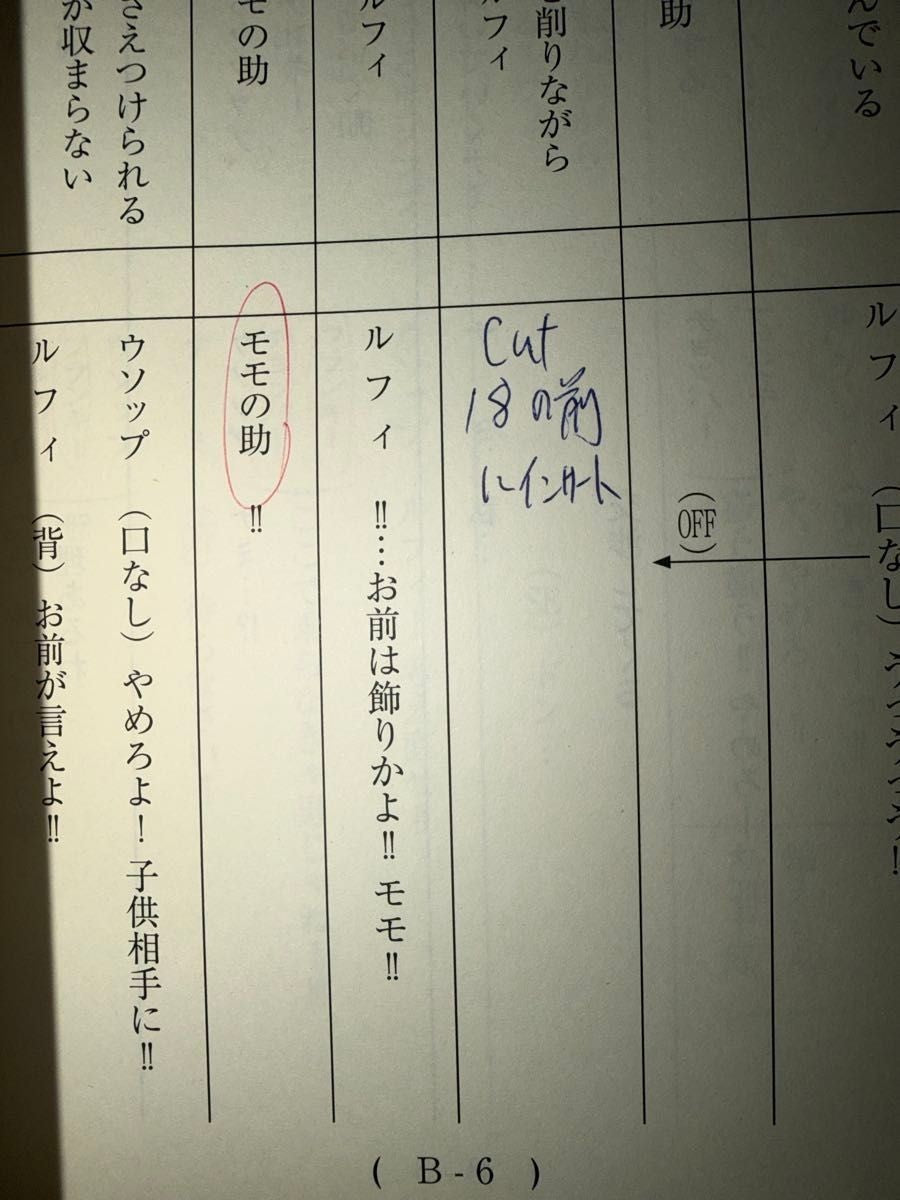 んでいる
ルフィ （口なし）うっうっうっ！
助
（OFF）
削りながら
ルフィ
Cut
18の前
にインサート
ルフィ
ルフィ ‼…お前は飾りかよ‼ モモ‼
モの助
モモの助 ‼
さえつけられる
が収まらない
ウソップ （口なし）やめろよ！子供相手に‼
ルフィ （背）お前が言えよ‼
( B-6 )